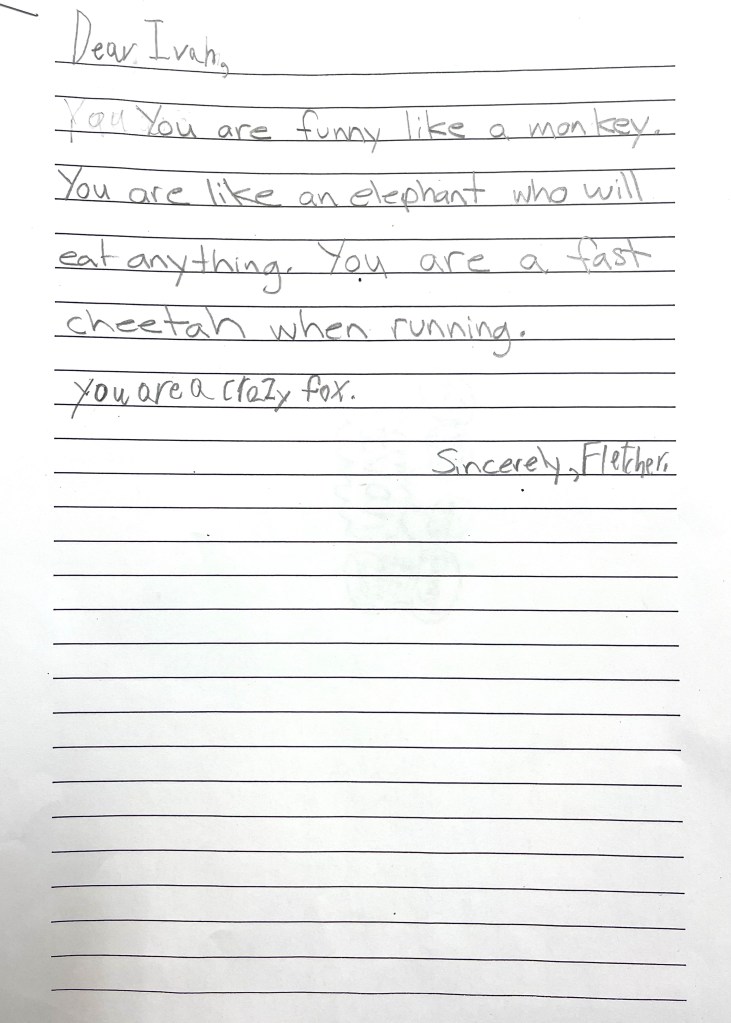 Dear Ivah,
You You are funny like a monkey.
You are like an elephant who will
eat anything. You are a fast
cheetah when running.
you are a crazy fox.
Sincerely, Fletcher.